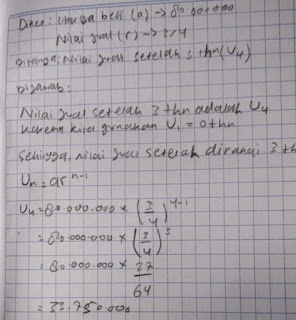 Diket: Harga beli (a) → 80.000.000
Nilai jual (r) → 3/4
Ditanya: Nilai jual setelah 3 thn (U4)
Dijawab:
Nilai jual setelah 3 thn adalah U4
karena kita gunakan U1 = 0 thn
Sehingga, nilai jual setelah dipakai 3 th
Un = ar^n-1
U4 = 80.000.000 × (3/4)^4-1
= 80.000.000 × (3/4)^3
= 80.000.000 × 27/64
= 33.750.000